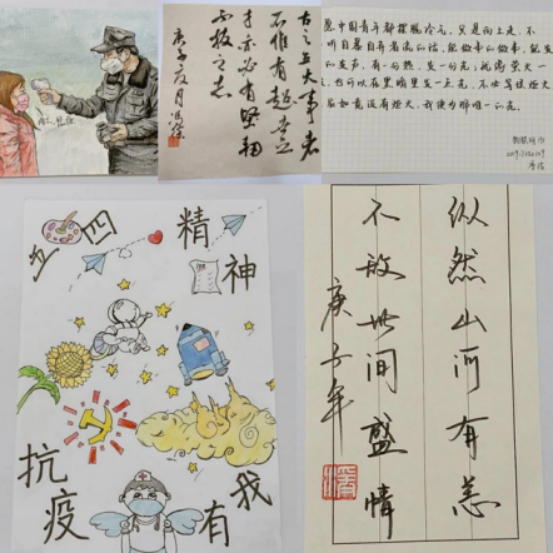 古之立大事者
不惟有超世之
才亦必有坚韧
不拔之志
庚子夏月
愿中国青年都摆脱冷气，只是向上走，不
听自暴自弃者流的话，能做事的做事，能发
的发声。有一分热，发一分光，萤火一
也可以在黑暗里发一点光，不必等候炬火
后如竟没有炬火，我便为那唯一的光。
五四精神
抗疫有我
纵然山河有恙
不敌世间盛情
庚子年